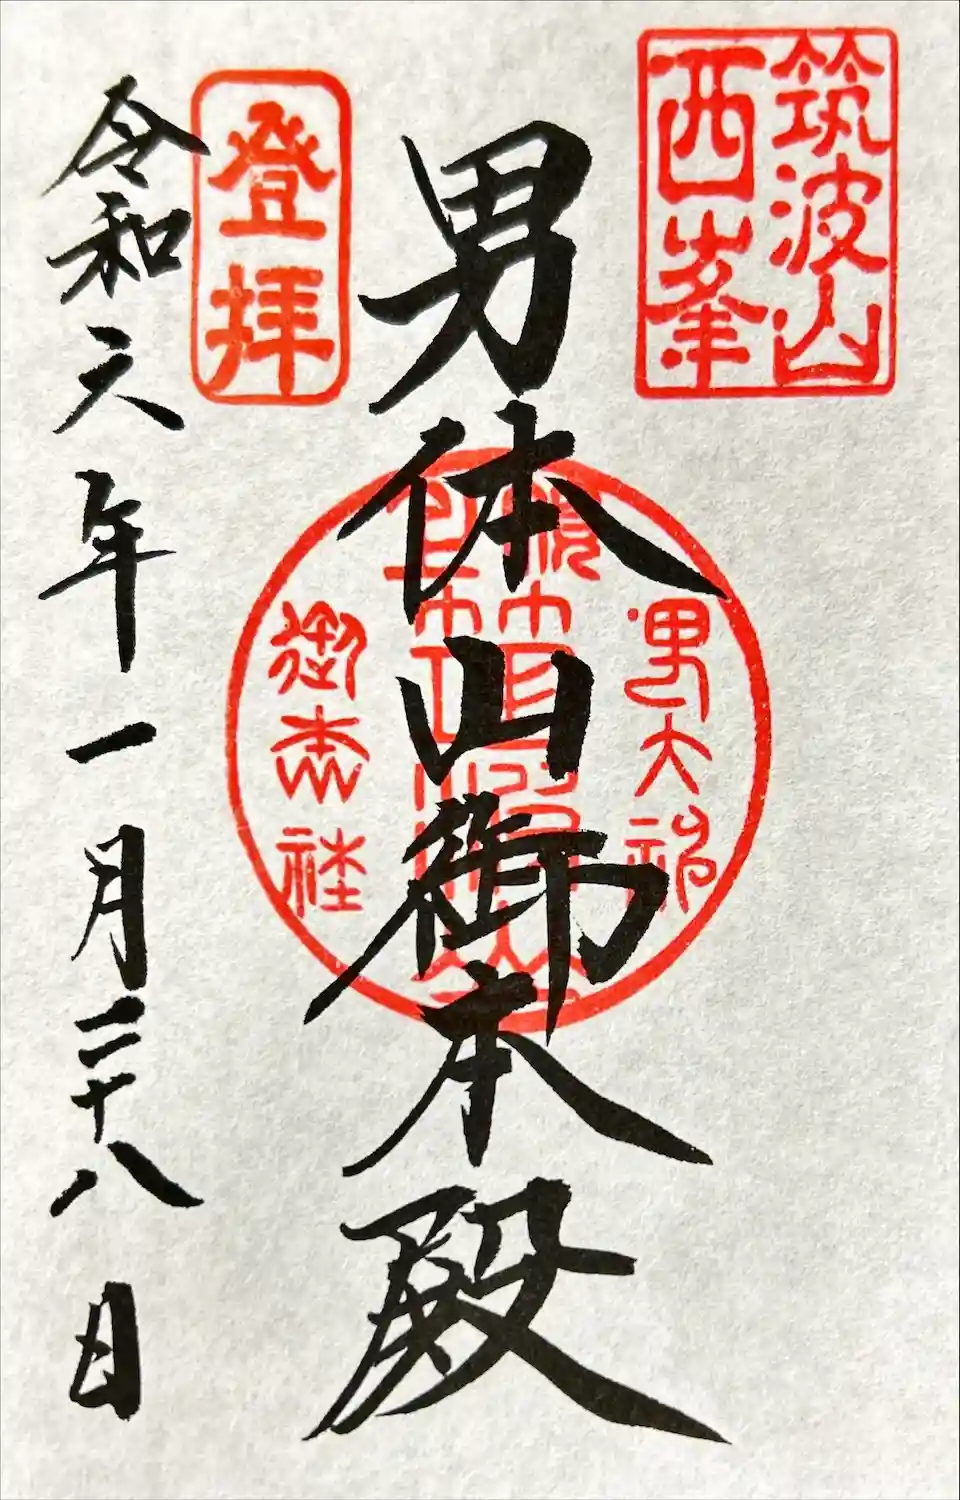 筑波山
西峯
男体山御本殿
男大神
御本社
登拝
令和六年一月二十八日